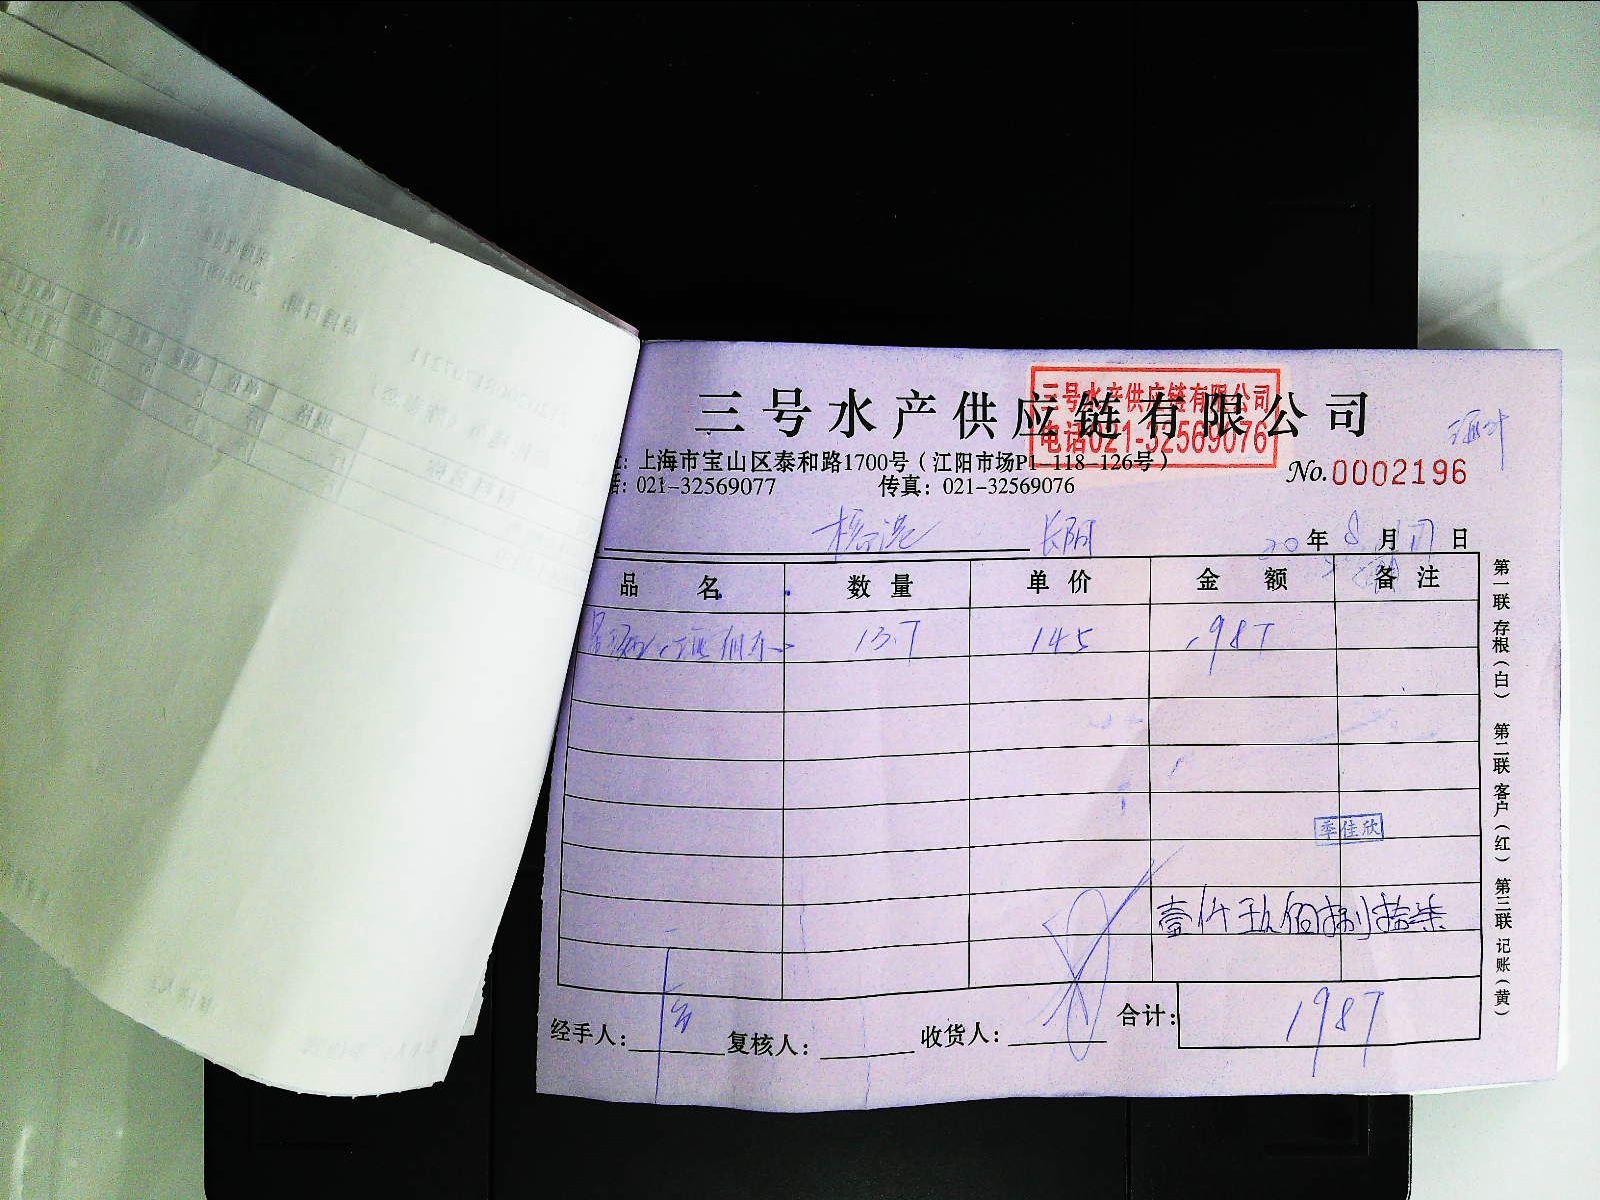 三号水产供应链有限公司
三号水产供应链有限公司
电话021-32569076
址: 上海市宝山区泰和路1700号（江阳市场P1-118-126号）
话: 021-32569077 传真: 021-32569076
No.0002196
20 年 8 月 17 日
品 名 数 量 单 价 金 额 备 注
13.7 145 1987
季佳欣
壹仟玖佰捌拾柒
经手人: 复核人: 收货人: 合计: 1987
第一联 存根（白） 第二联 客户（红） 第三联 记账（黄）